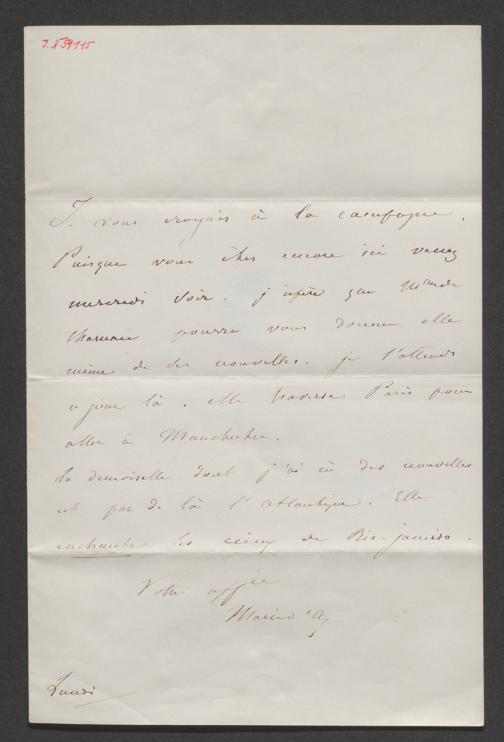 J.N 59115
Je vous croyais à la campagne.
Puisque vous êtes encore ici venez
mercredi soir. j'espère que
pourra vous donner elle
même de ses nouvelles. je l'attends
ce jour là. elle traverse Paris pour
aller à Manchester.
La demoiselle dont j'ai eu des nouvelles
est par de là l'atlantique. Elle
enchante les cieux de Rio-janeiro.
Votre aff.ée
Marie
Lundi